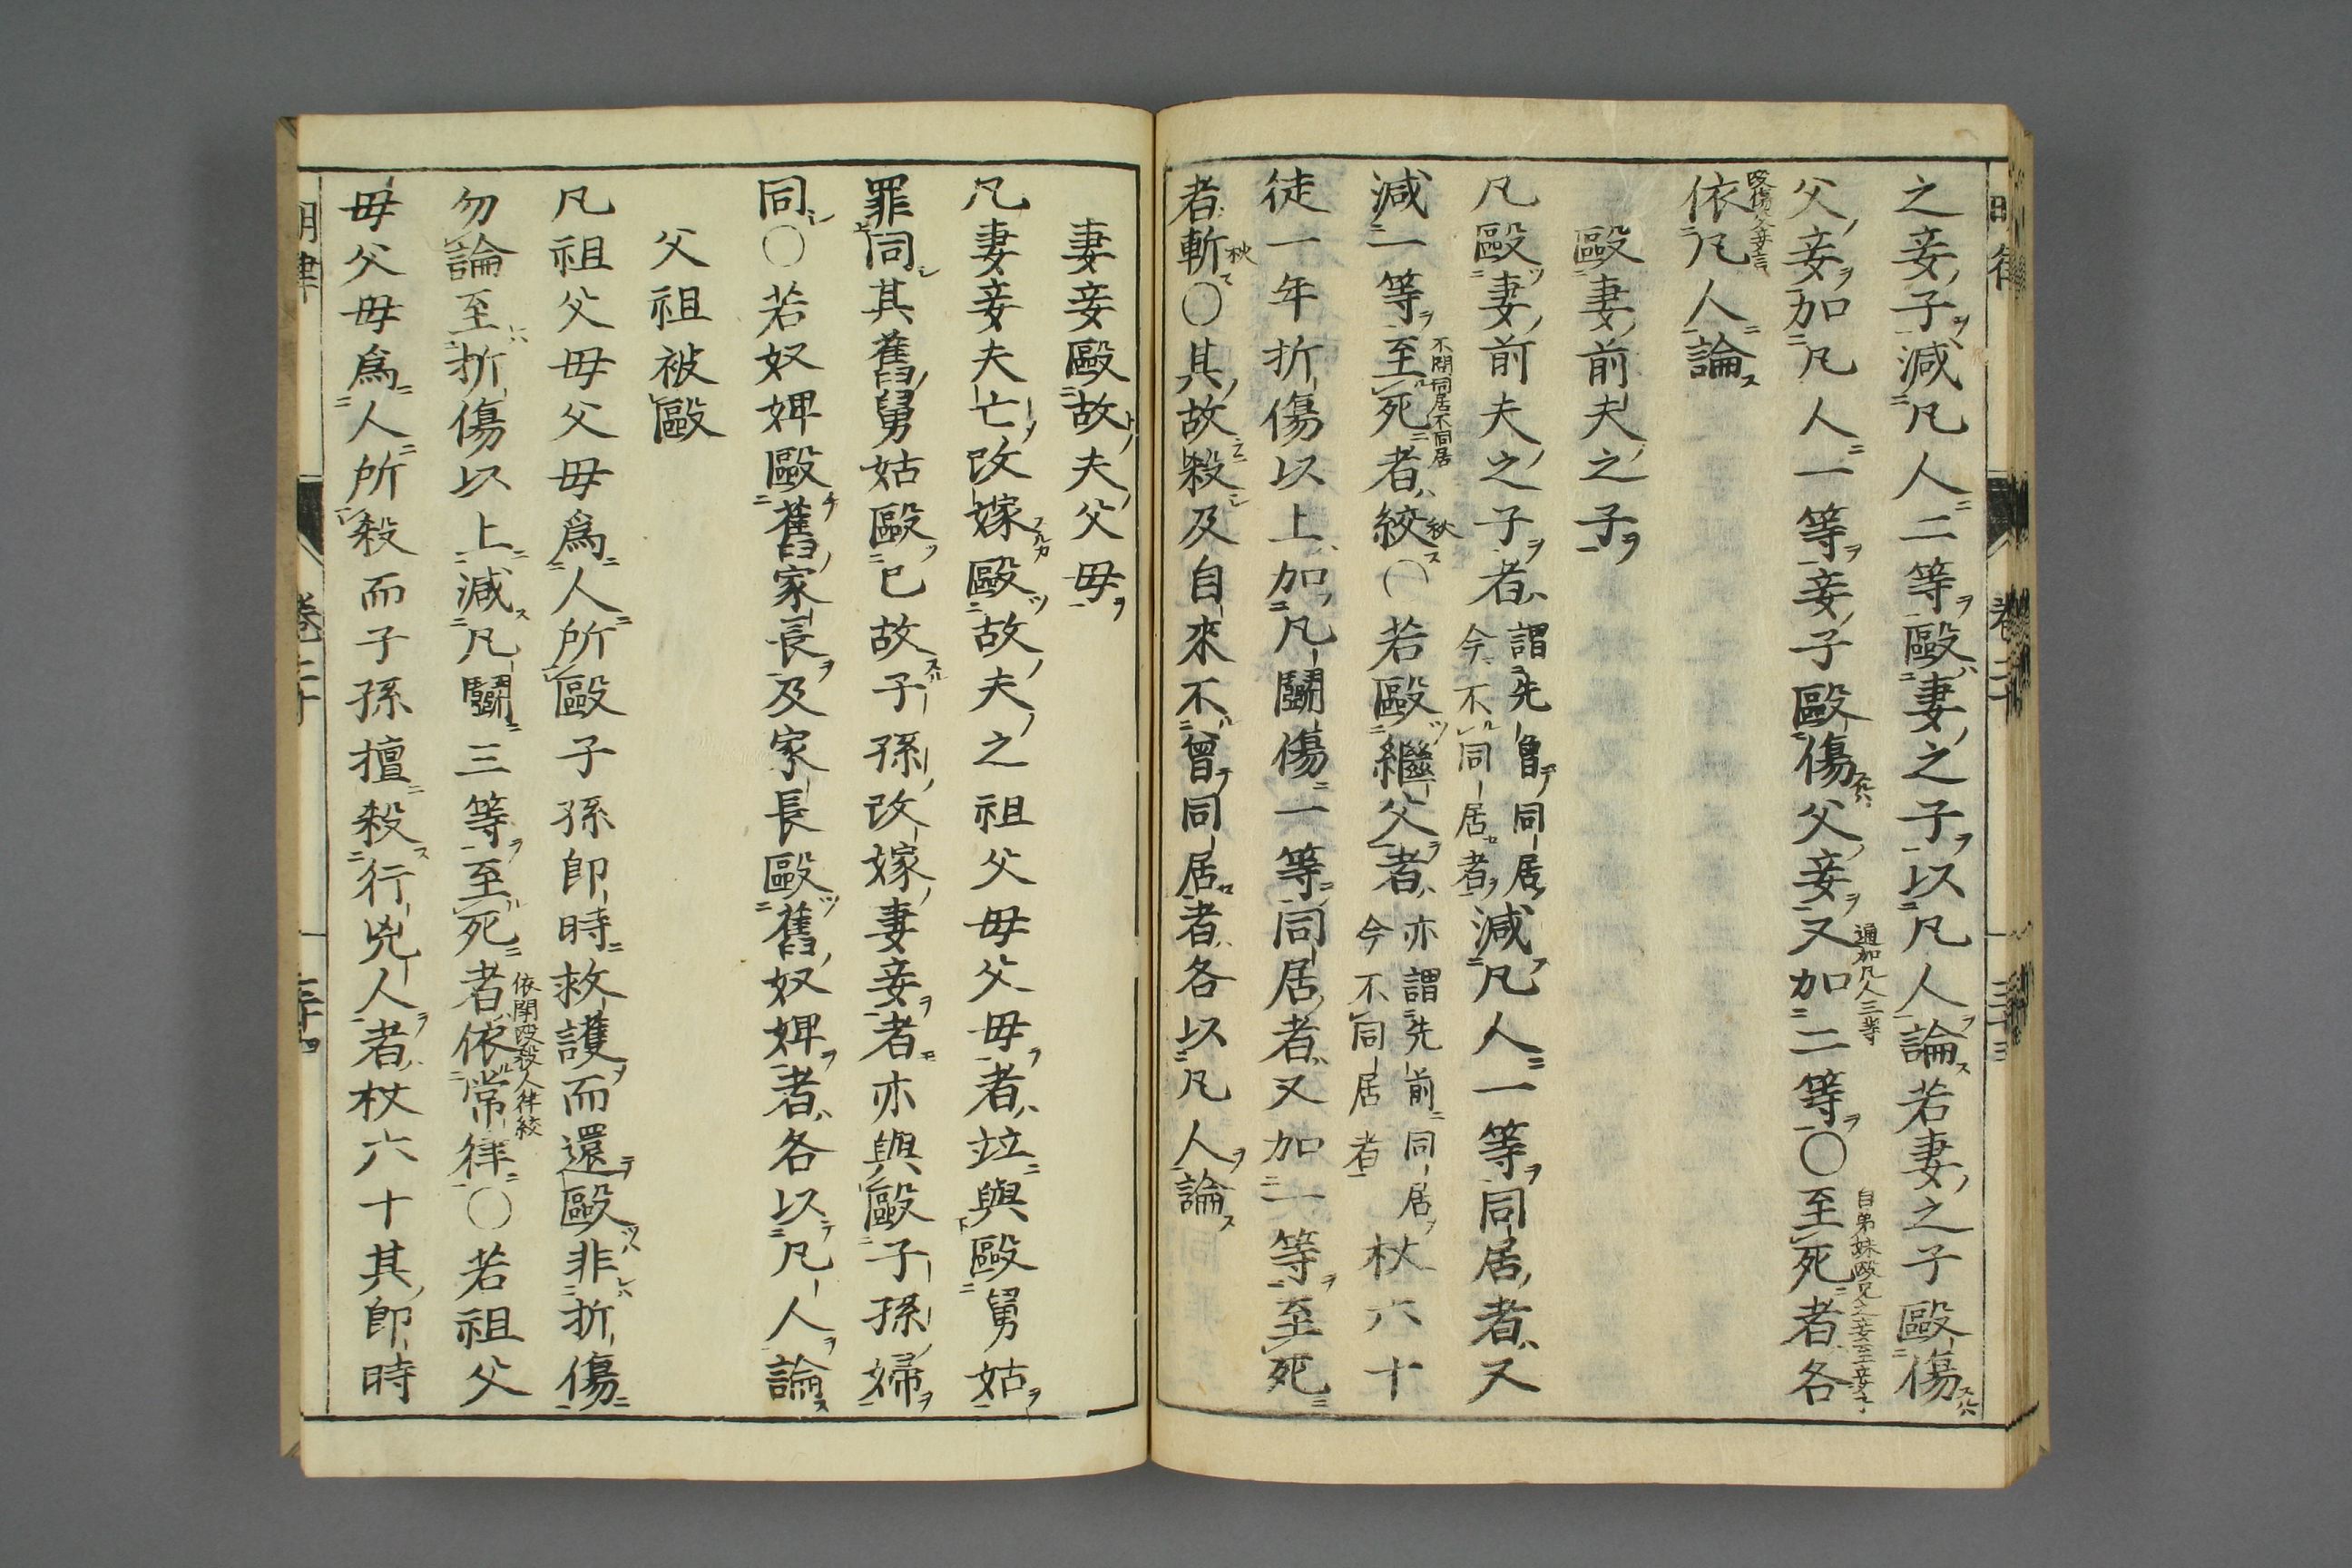 之妾子減凡人二等毆妻之子以凡人論若妻之子毆傷
父妾加凡人一等妾子毆傷父妾又加二等○至死者各
通加凡人三等
自弟妹毆兄之妾至妾子
毆傷父妾言
依凡人論
毆妻前夫之子
凡毆妻前夫之子者謂先曾同居今不同居者減凡人一等同居者又
減一等至死者絞○若毆繼父者亦謂先前同居今不同居者杖六十
不問同居不同居
秋
徒一年折傷以上加凡鬬傷一等同居者又加一等至死
者斬○其故殺及自來不曾同居者各以凡人論
秋
妻妾毆故夫父母
凡妻妾夫亡改嫁毆故夫之祖父母父母者竝與毆舅姑
罪同其舊舅姑毆已故子孫改嫁妻妾者亦與毆子孫婦
同○若奴婢毆舊家長及家長毆舊奴婢者各以凡人論
父祖被毆
凡祖父母父母爲人所毆子孫即時救護而還毆非折傷
勿論至折傷以上減凡鬬三等至死者依常律○若祖父
依鬬毆殺人律絞
母父母爲人所殺而子孫擅殺行兇人者杖六十其即時